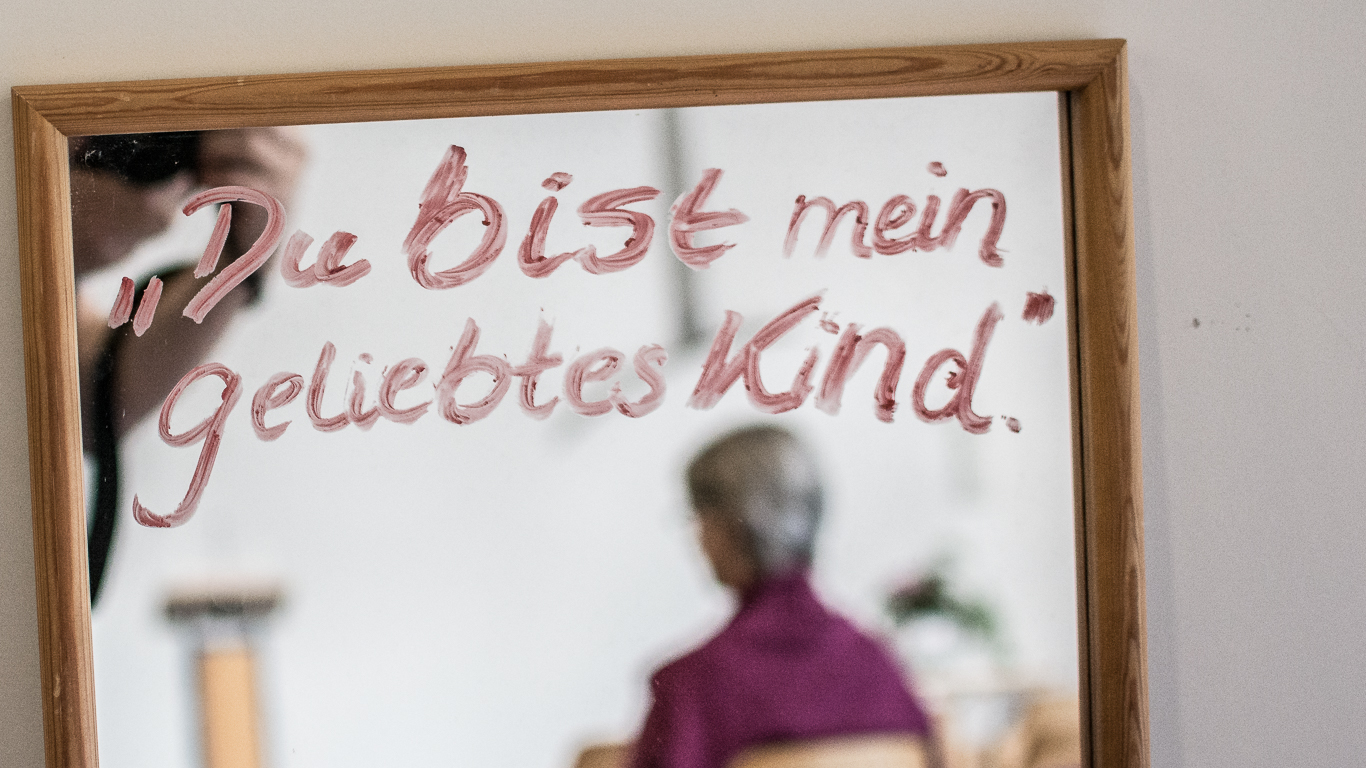 „Du bist mein
geliebtes Kind."